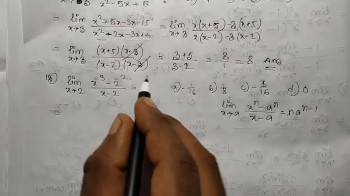 x² - 5x + 6
= lim x→3 x²+5x-3x-15 / x²+2x-3x+6 = lim x→3 x(x+5)-3(x+5) / x(x-2)-3(x-2)
= lim x→3 (x+5)(x-3) / (x-2)(x-3) = 3+5 / 3-2 = 8/1 = 8 Ans
18) lim x→2 x⁻³-2⁻³ / x-2 = a) -3/16 b) 1/8 c) 3/16 d) 0
lim x→a xⁿ-aⁿ / x-a = naⁿ⁻¹